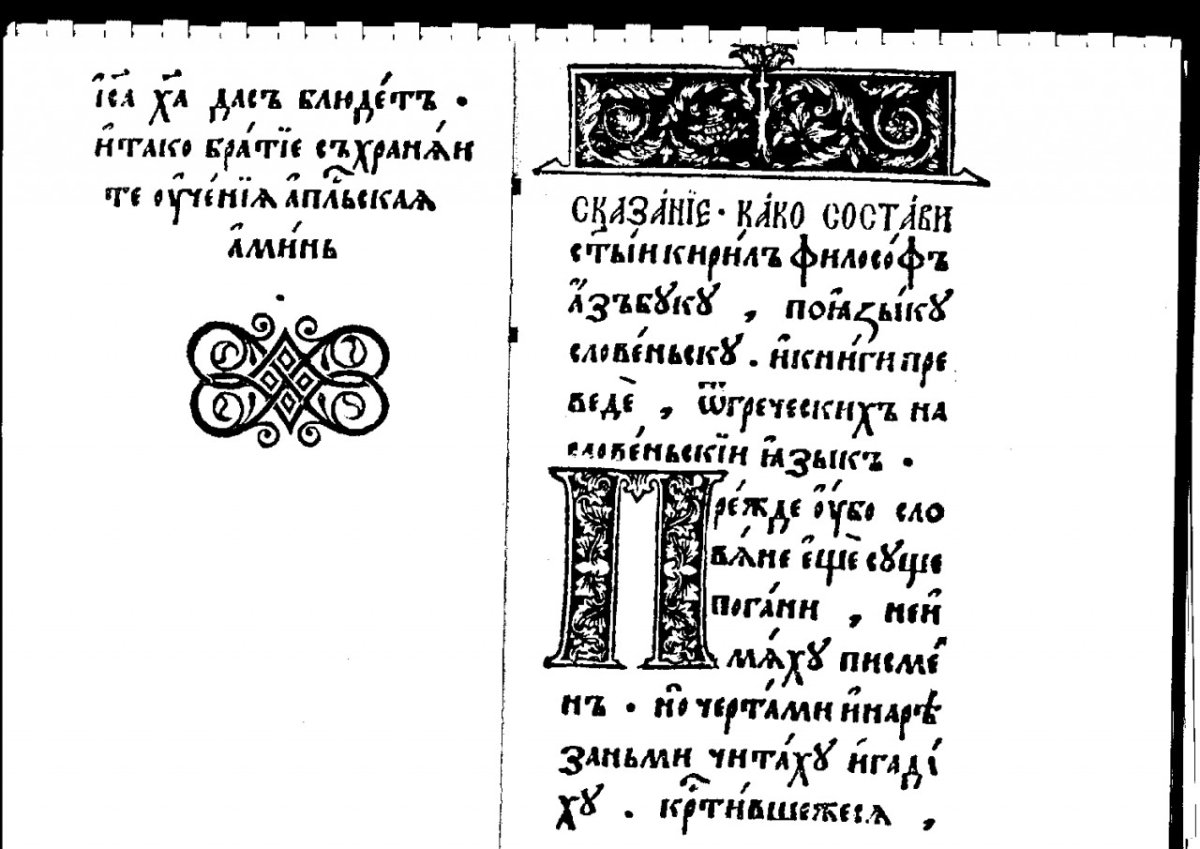 і҆с҃а хс҃а дасъ блюде́тъ .
и҆тако бра́тїе съхранѧ́и
те оу҆че́нїѧ а҆пⷭ҇льскаѧ
а҆ми́нь
сказа́нїе · ка́ко соста́ви
ст҃ы́и кири́лъ фїлосо́фъ
а҆́зъбꙋкꙋ , поꙗ҆зы́кꙋ
слове́ньскꙋ . и҆кни́ги пре
ведѐ , ѿгреческихъ на
слове́ньскїи ꙗ҆зыкъ .
Пре́жде оу҆́бо сло
вѧ́не є҆щѐ сꙋще
пога́ни , неи҆
мѧ́хꙋ писме҆
нъ . но҆ черта́ми и҆нарѣ́
заньми чита́хꙋ и҆гаді́
хꙋ . крⷭ҇ти́вшежесѧ ,